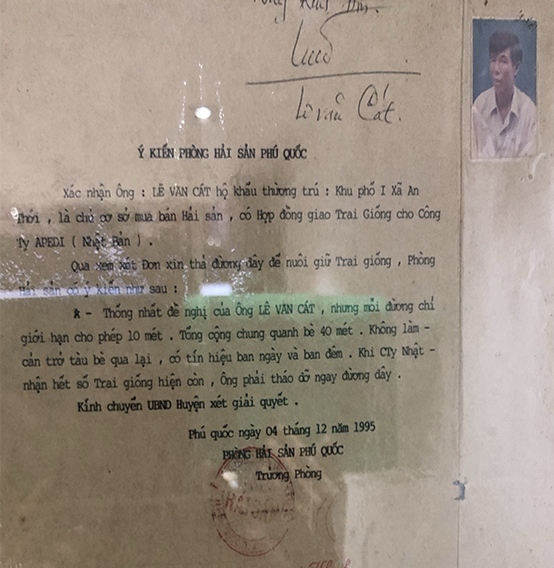 Lê văn Cát.
Ý KIẾN PHÒNG HẢI SẢN PHÚ QUỐC
Xác nhận Ông : LÊ VĂN CÁT hộ khẩu thường trú : Khu phố I Xã An
Thới , là chủ cơ sở mua bán Hải sản , có Hợp đồng giao Trai Giống cho Công
Ty APEDI ( Nhật Bản ) .
Qua xem xét Đơn xin thả đường dây để nuôi giữ Trai giống , Phòng
Hải sản có ý kiến như sau :
- Thống nhất đề nghị của Ông LÊ VĂN CÁT , nhưng mỗi đường chỉ
giới hạn cho phép 10 mét . Tổng cộng chung quanh bè 40 mét . Không làm -
cản trở tàu bè qua lại , có tín hiệu ban ngày và ban đêm . Khi CTy Nhật -
nhận hết số Trai giống hiện còn , Ông phải tháo dỡ ngay đường dây .
Kính chuyển UBND Huyện xét giải quyết .
Phú quốc ngày 04 tháng 12 năm 1995
PHÒNG HẢI SẢN PHÚ QUỐC
Trưởng Phòng